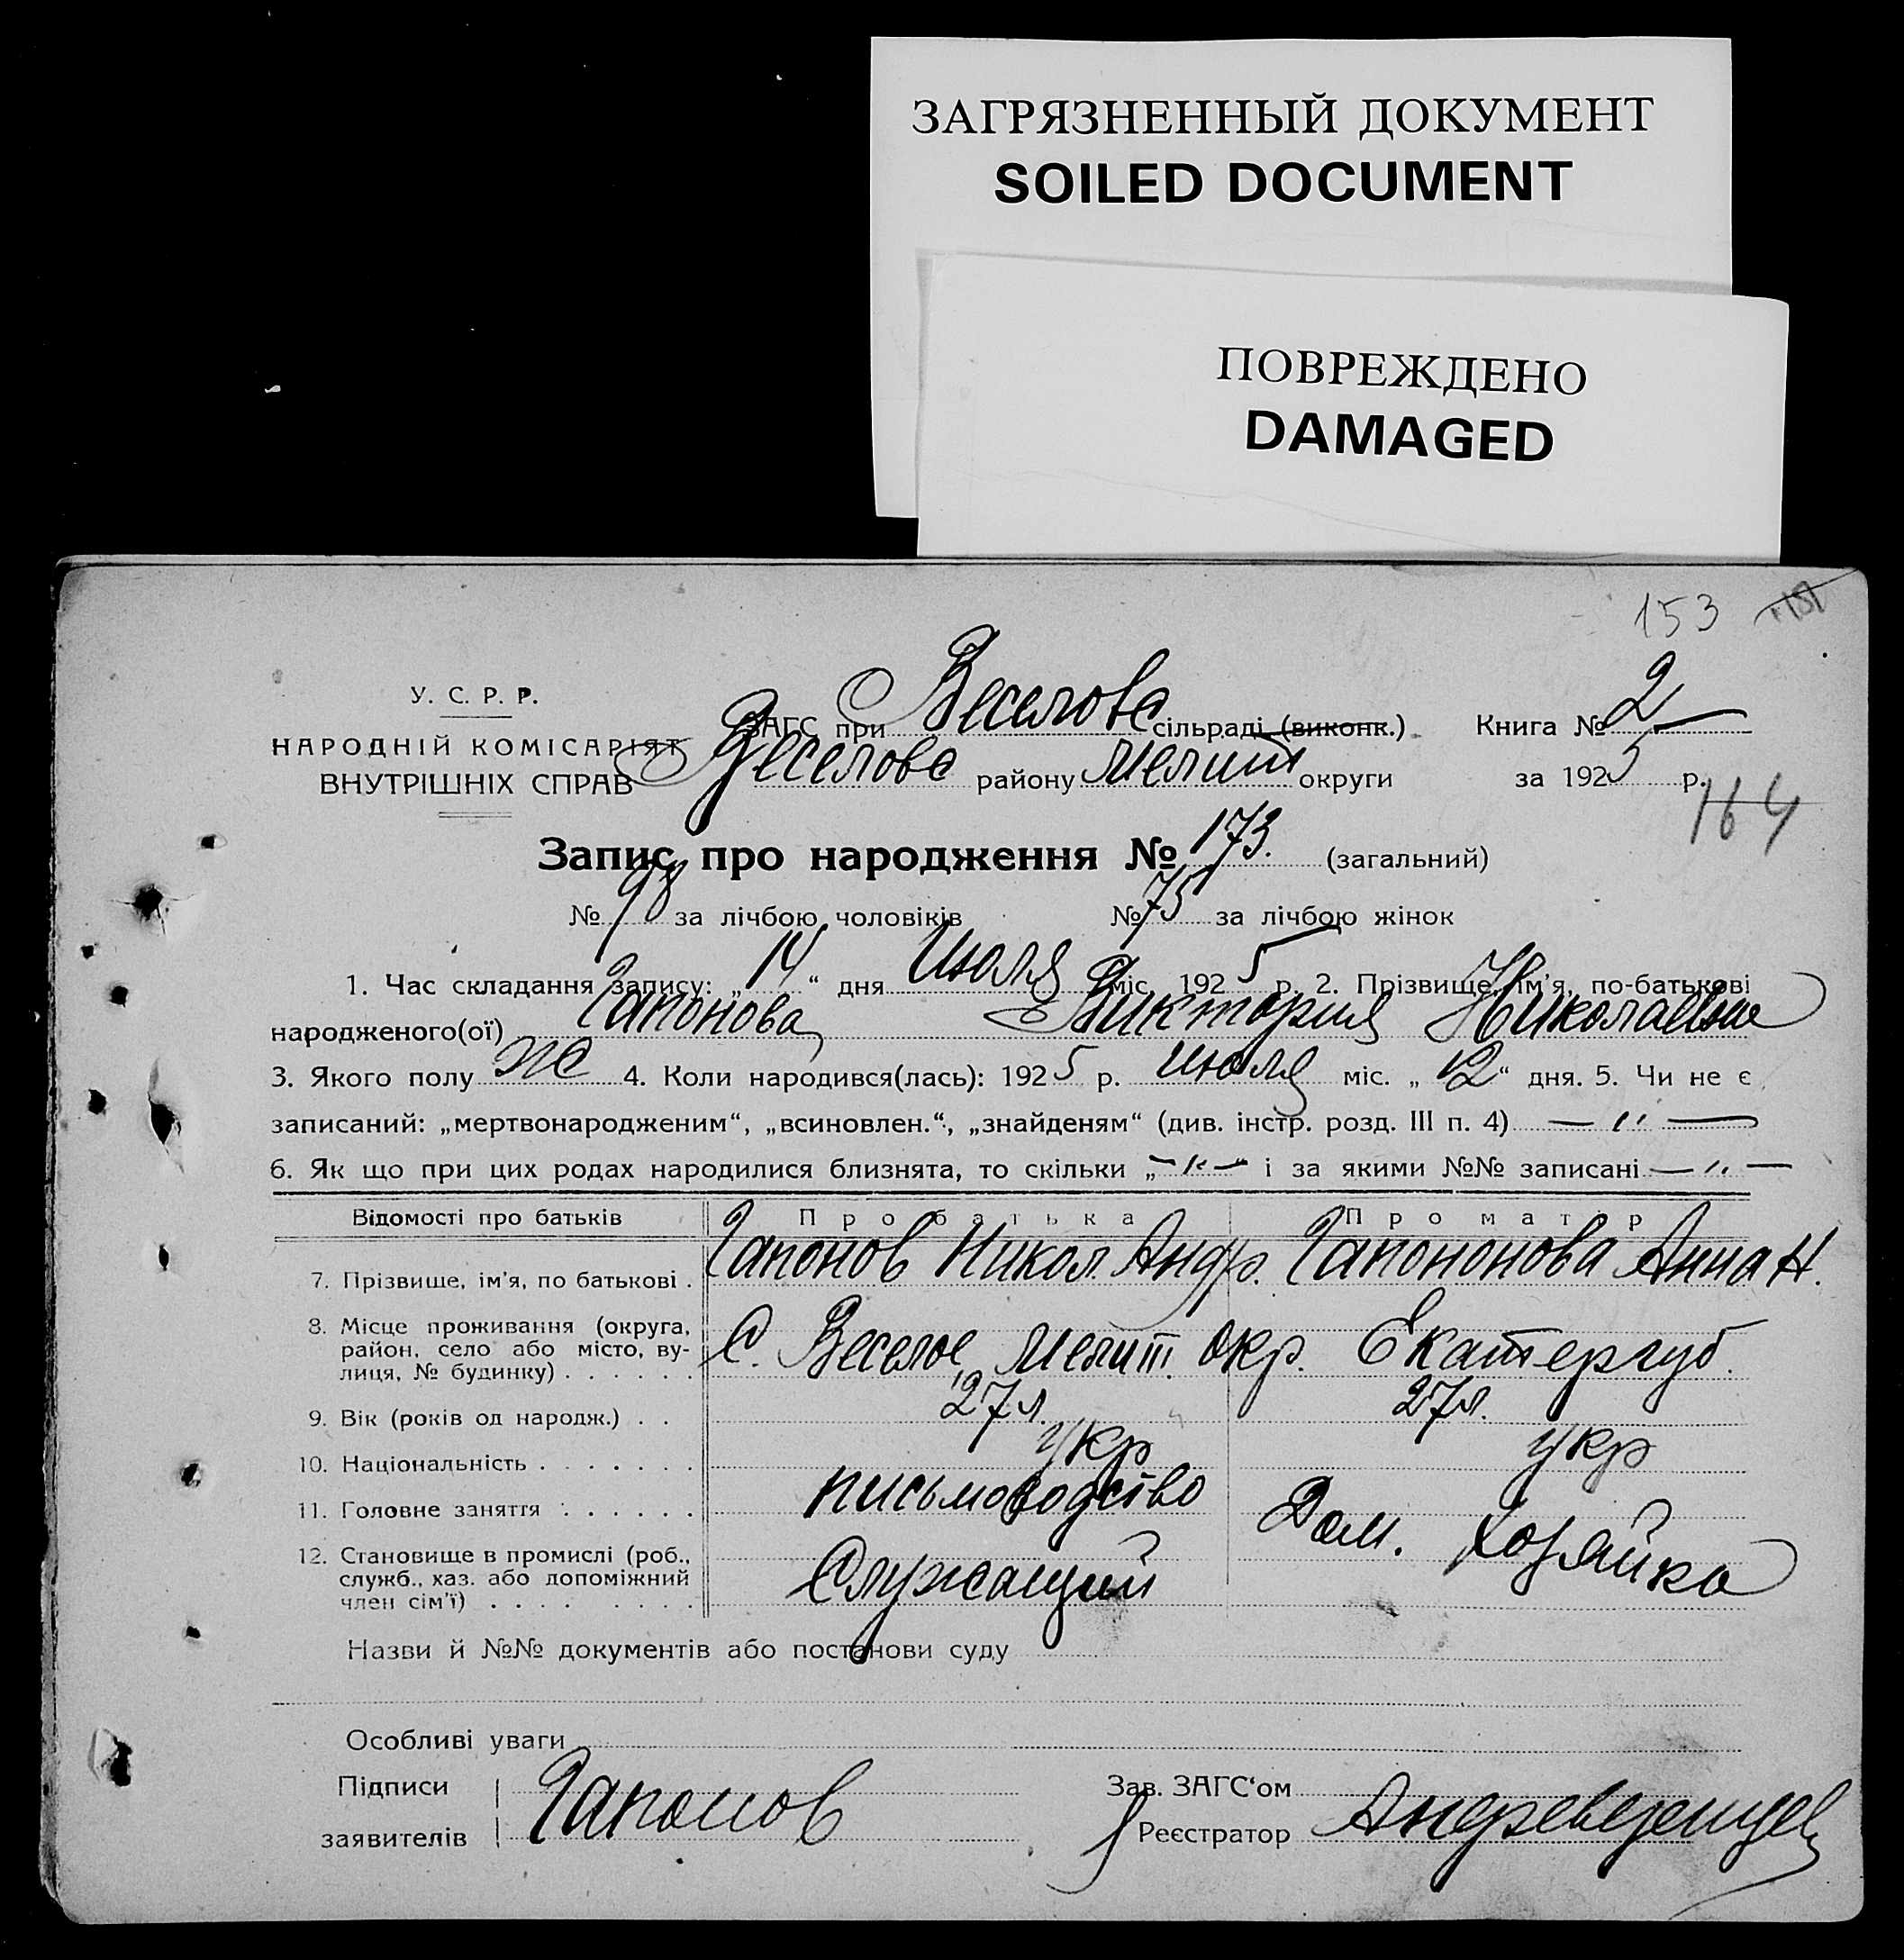 ЗАГРЯЗНЕННЫЙ ДОКУМЕНТ
SOILED DOCUMENT
ПОВРЕЖДЕНО
DAMAGED
153
У. С. Р. Р.
НАРОДНІЙ КОМІСАРІЯТ
ВНУТРІШНІХ СПРАВ
ЗАГС при Веселовс сільраді (виконк.) Книга № 2
Веселовс району Мелит округи за 1925 р.
164
Запис про народження № 173. (загальний)
№ 98 за лічбою чоловіків № 75 за лічбою жінок
1. Час складання запису: „14“ дня Июля міс. 1925 р. 2. Прізвище, ім'я, по-батькові
народженого(ої) Гапонова Виктория Николаевна
3. Якого полу Же 4. Коли народився(лась): 1925 р. июля міс. „12“ дня. 5. Чи не є
записаний: „мертвонародженим“, „всиновлен.“, „знайденям“ (див. інстр. розд. III п. 4) — " —
6. Як що при цих родах народилися близнята, то скільки „—"—“ і за якими №№ записані — " —
Відомості про батьків Про батька Про матір
7. Прізвише, ім'я, по батькові . Гапонов Никол. Андр. Гапононова Анна Н.
8. Місце проживання (округа, район, село або місто, вулиця, № будинку) . . . . . . С. Веселое, Мелит. окр. Екатергуб.
9. Вік (років од народж.) . . 27 л. 27 л.
10. Національність . . . . . . . укр укр
11. Головне заняття . . . . . . письмоводство Дом. хозяйка
12. Становище в промислі (роб., служб., хаз. або допоміжний член сім'ї) . . . . . . . . Служащий
Назви й №№ документів або постанови суду
Особливі уваги
Підписи заявителів Гапонов
Зав. ЗАГС‘ом
Реєстратор